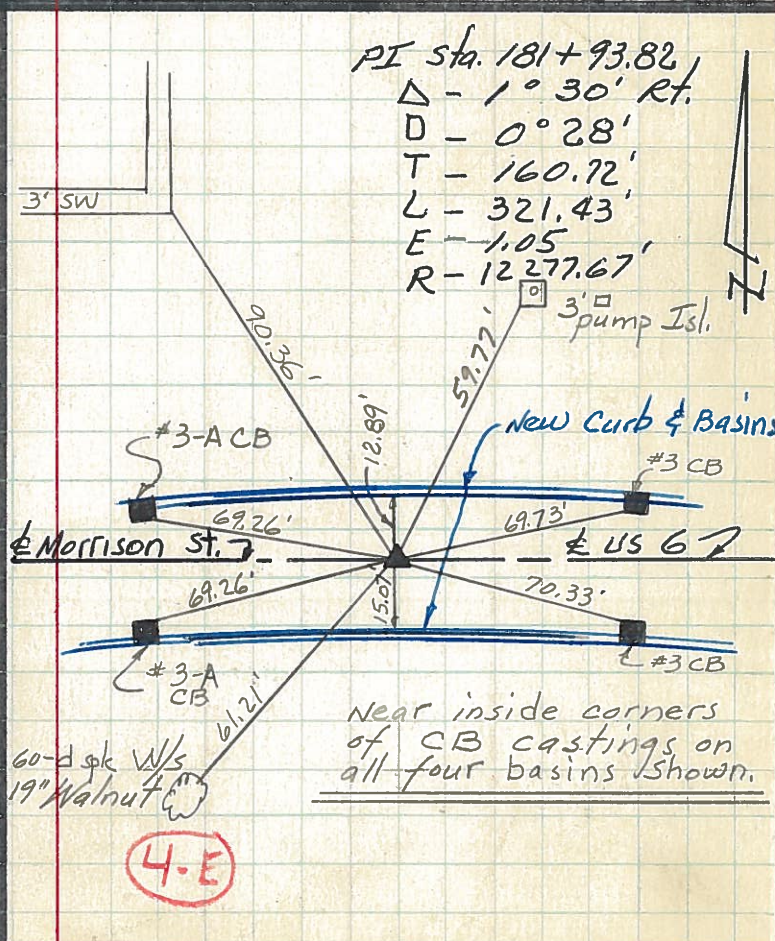 PI Sta. 181+93.82
Δ - 1° 30' Rt.
D - 0° 28'
T - 160.72'
L - 321.43'
E - 1.05'
R - 12277.67'
N
3' SW
3' □
pump Isl.
90.36'
59.77'
12.89'
New Curb & Basins
#3-A CB
#3 CB
69.26'
69.73'
℄ Morrison St.
℄ US 6
69.26'
15.07'
70.33'
#3-A
CB
#3 CB
61.21'
Near inside corners
of CB castings on
all four basins shown.
60-d spk W/s
19" Walnut
4-E